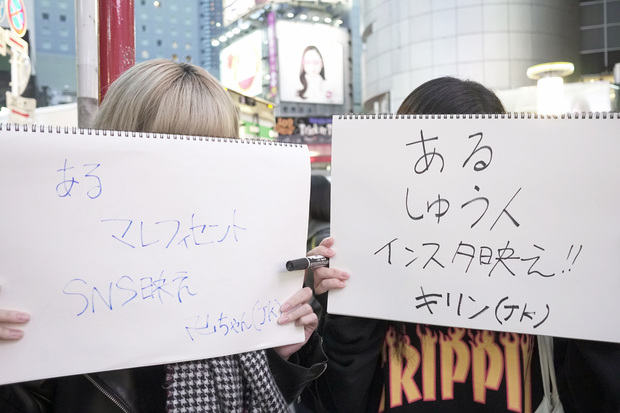 ある
マレフィセント
SNS映え
ちゃん(JK)
ある
しゅう人
インスタ映え!!
キリン(JK)
RIPPI